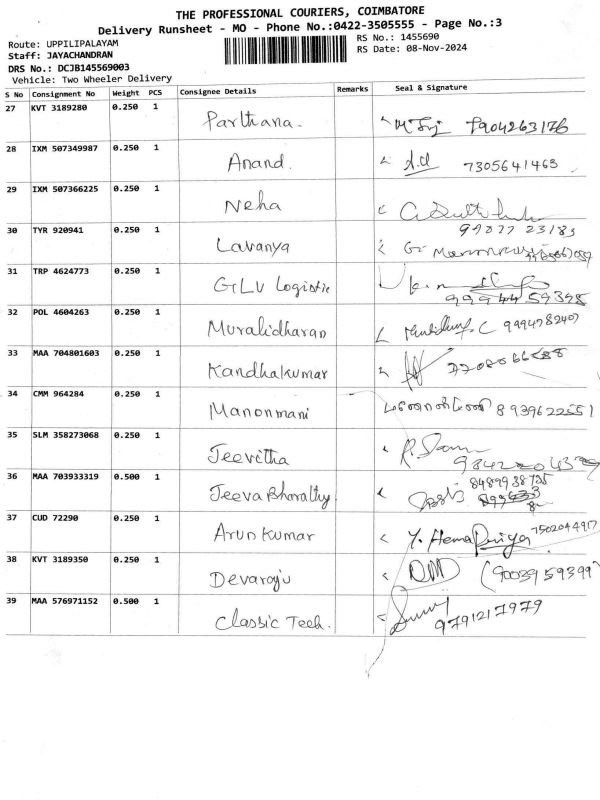 THE PROFESSIONAL COURIERS, COIMBATORE
Delivery Runsheet - MO - Phone No.:0422-3505555 - Page No.:3
Route: UPPILIPALAYAM
RS No.: 1455690
Staff: JAYACHANDRAN
RS Date: 08-Nov-2024
DRS No.: DCJB145569003
Vehicle: Two Wheeler Delivery
S No Consignment No Weight PCS Consignee Details Remarks Seal & Signature
27 KVT 3189280 0.250 1 Parthana. 7904263176
28 IXM 507349987 0.250 1 Anand. 7305641463
29 IXM 507366225 0.250 1 Neha
99077 23183
30 TYR 920941 0.250 1 Lavanya
31 TRP 4624773 0.250 1 GLV Logistic
32 POL 4604263 0.250 1 Muralidharan 9994782407
33 MAA 704801603 0.250 1 Kandhakumar
34 CMM 964284 0.250 1 Manonmani 8939622551
35 SLM 358273068 0.250 1 Jeevitha
36 MAA 703933319 0.500 1 Jeeva Bharathy.
37 CUD 72290 0.250 1 Arunkumar Y. HemaPriya 7502044917
38 KVT 3189350 0.250 1 Devaraju (9003959399)
39 MAA 576971152 0.500 1 Classic Tech. 9791217979